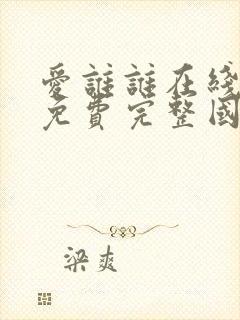 愛誰誰在线
免費完整國
梁爽